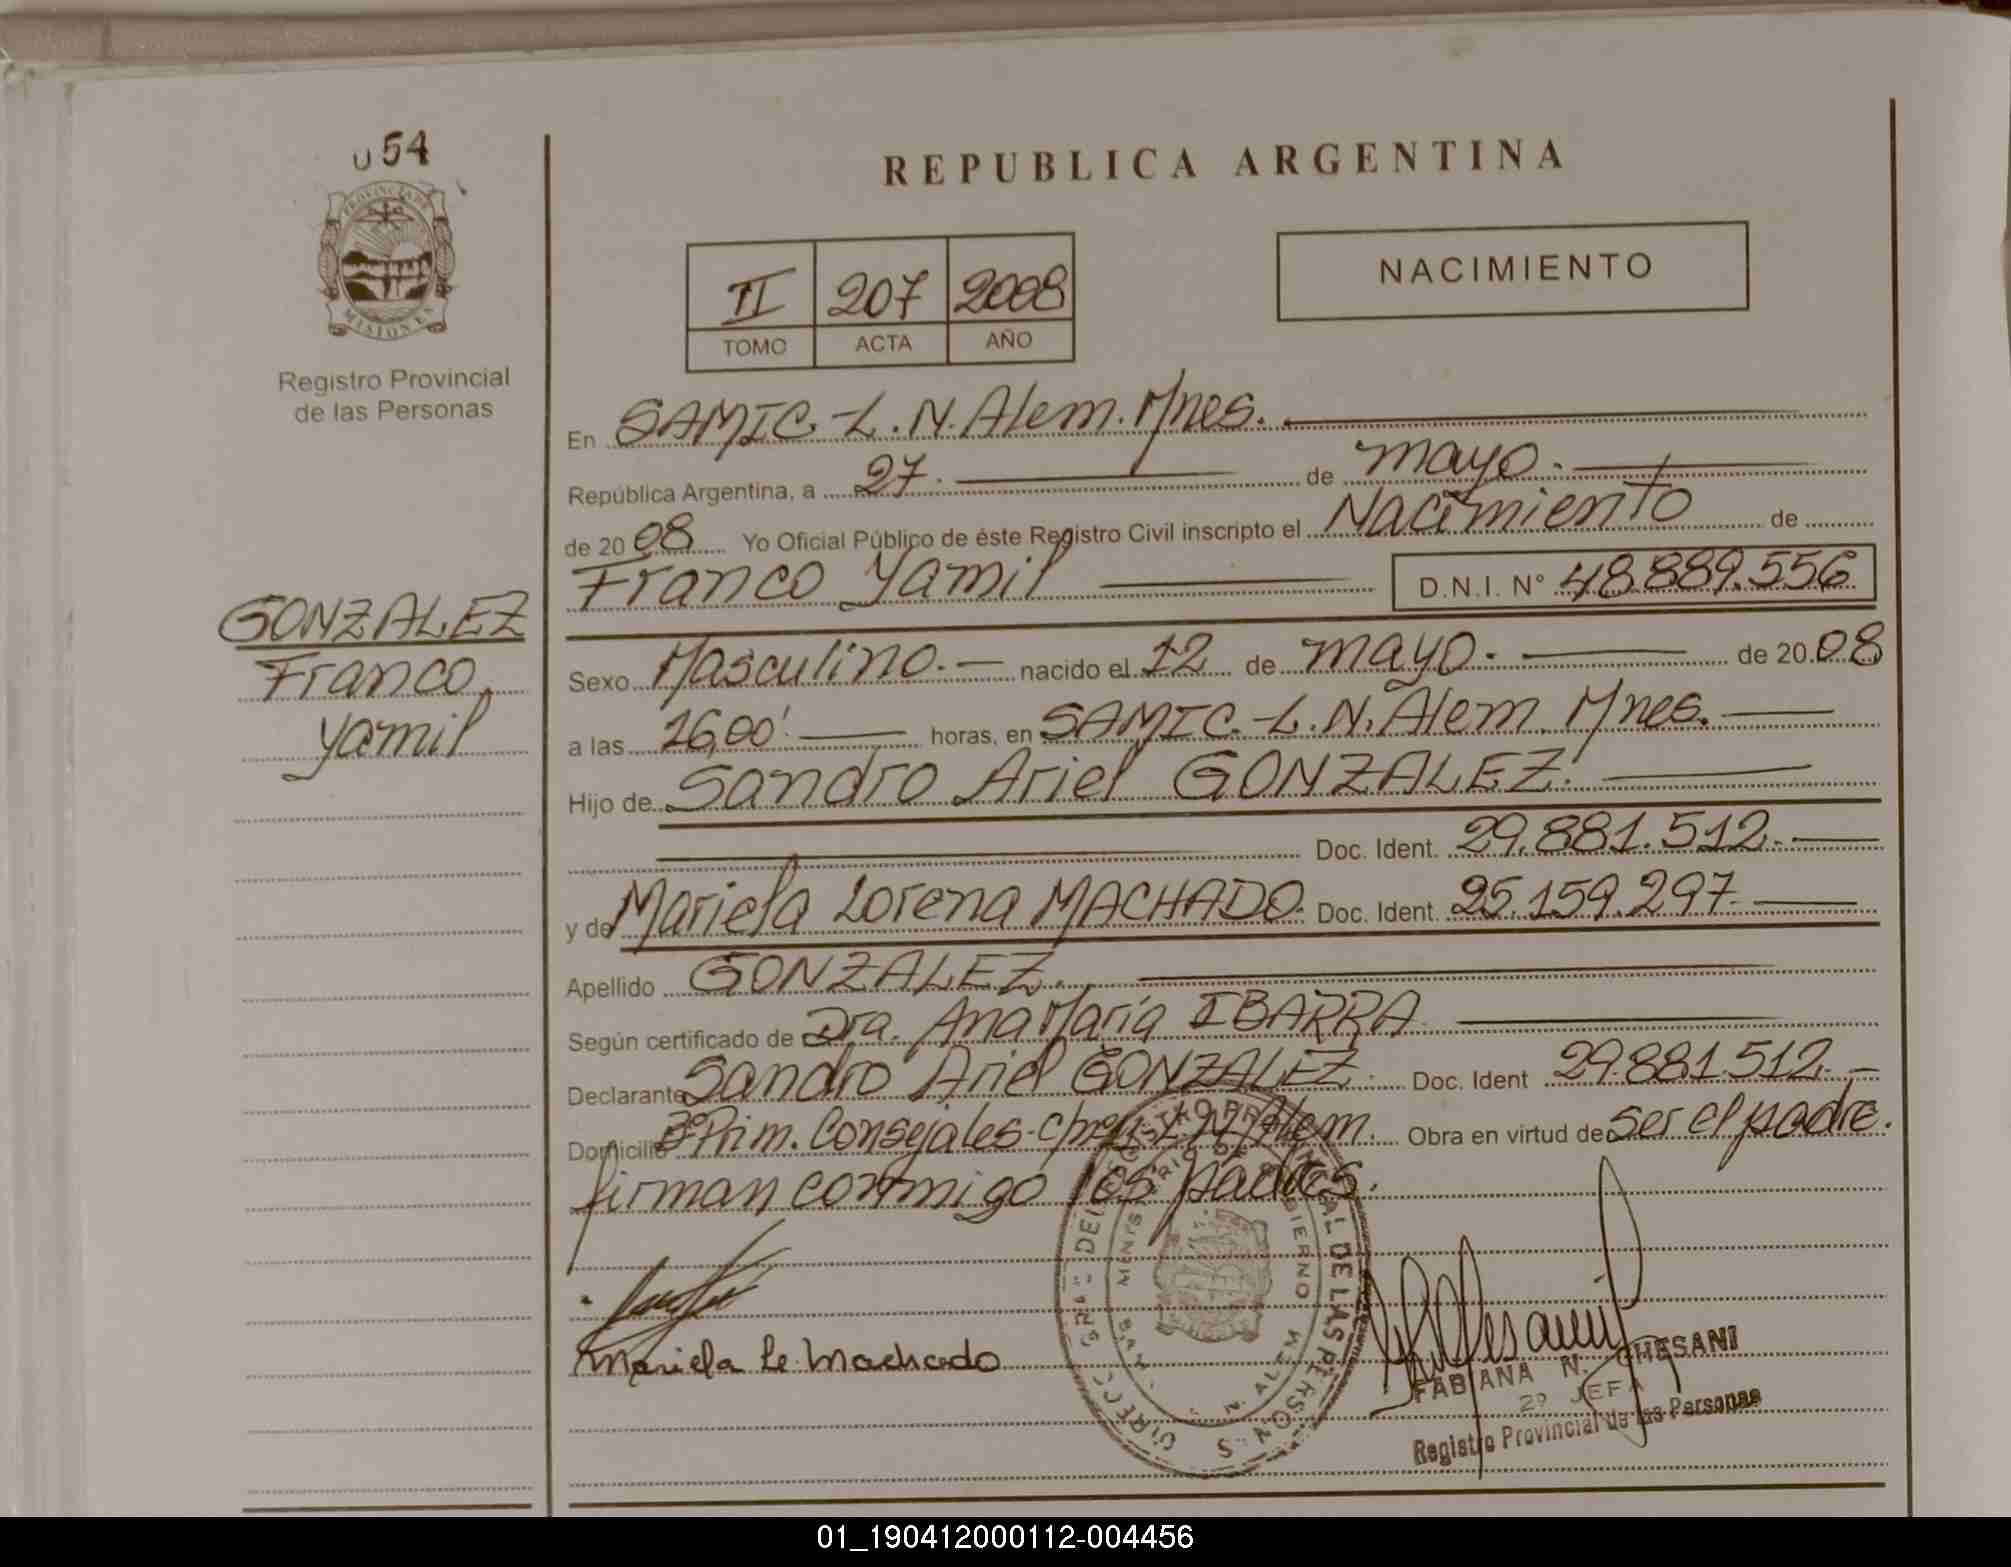 054
PROVINCIA DE
MISIONES
Registro Provincial
de las Personas
GONZALEZ
Franco
Yamil
REPUBLICA ARGENTINA
II 207 2008
TOMO ACTA AÑO
NACIMIENTO
En SAMIC.-L.N.Alem.Mnes.
República Argentina, a 27. de mayo.
de 2008 Yo Oficial Público de éste Registro Civil inscripto el Nacimiento de
Franco Yamil D.N.I. N° 48.889.556
Sexo Masculino.- nacido el 12 de mayo. de 20 08
a las 16,00' horas, en SAMIC.-L.N.Alem.Mnes.
Hijo de Sandro Ariel GONZALEZ.
Doc. Ident. 29.881.512.
y de Mariela Lorena MACHADO. Doc. Ident. 25.159.297.
Apellido GONZALEZ.
Según certificado de Dra. Ana María IBARRA
Declarante Sandro Ariel GONZALEZ. Doc. Ident 29.881.512.-
Domicilio Prim. Consejales- L.N.Alem. Obra en virtud de ser el padre.
firman conmigo los padres.
Mariela Le Machado
FABIANA N. GHESANI
2º JEFA
Registro Provincial de las Personas
01_190412000112-004456